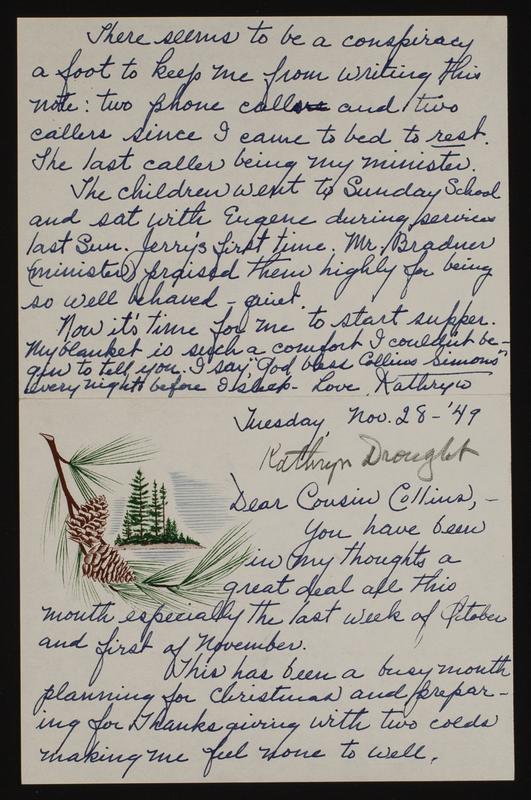 There seems to be a conspiracy
a foot to keep me from writing this
note: two phone calls and two
callers since I came to bed to rest.
The last caller being my minister.
The children went to Sunday School
and sat with Eugene during services
last Sun. Jerry's first time. Mr. Bradner
(minister) praised them highly for being
so well behaved - quiet.
Now it's time for me to start supper.
My blanket is such a comfort I couldn't be-
gin to tell you. I say, "God bless Collins Simons"
every night before I sleep. Love, Kathryn
Tuesday, Nov. 28 - '49
Kathryn Drought
Dear Cousin Collins, -
You have been
in my thoughts a
great deal all this
month especially the last week of October
and first of November.
This has been a busy month
planning for Christmas and prepar-
ing for Thanksgiving with two colds
making me feel none to well.